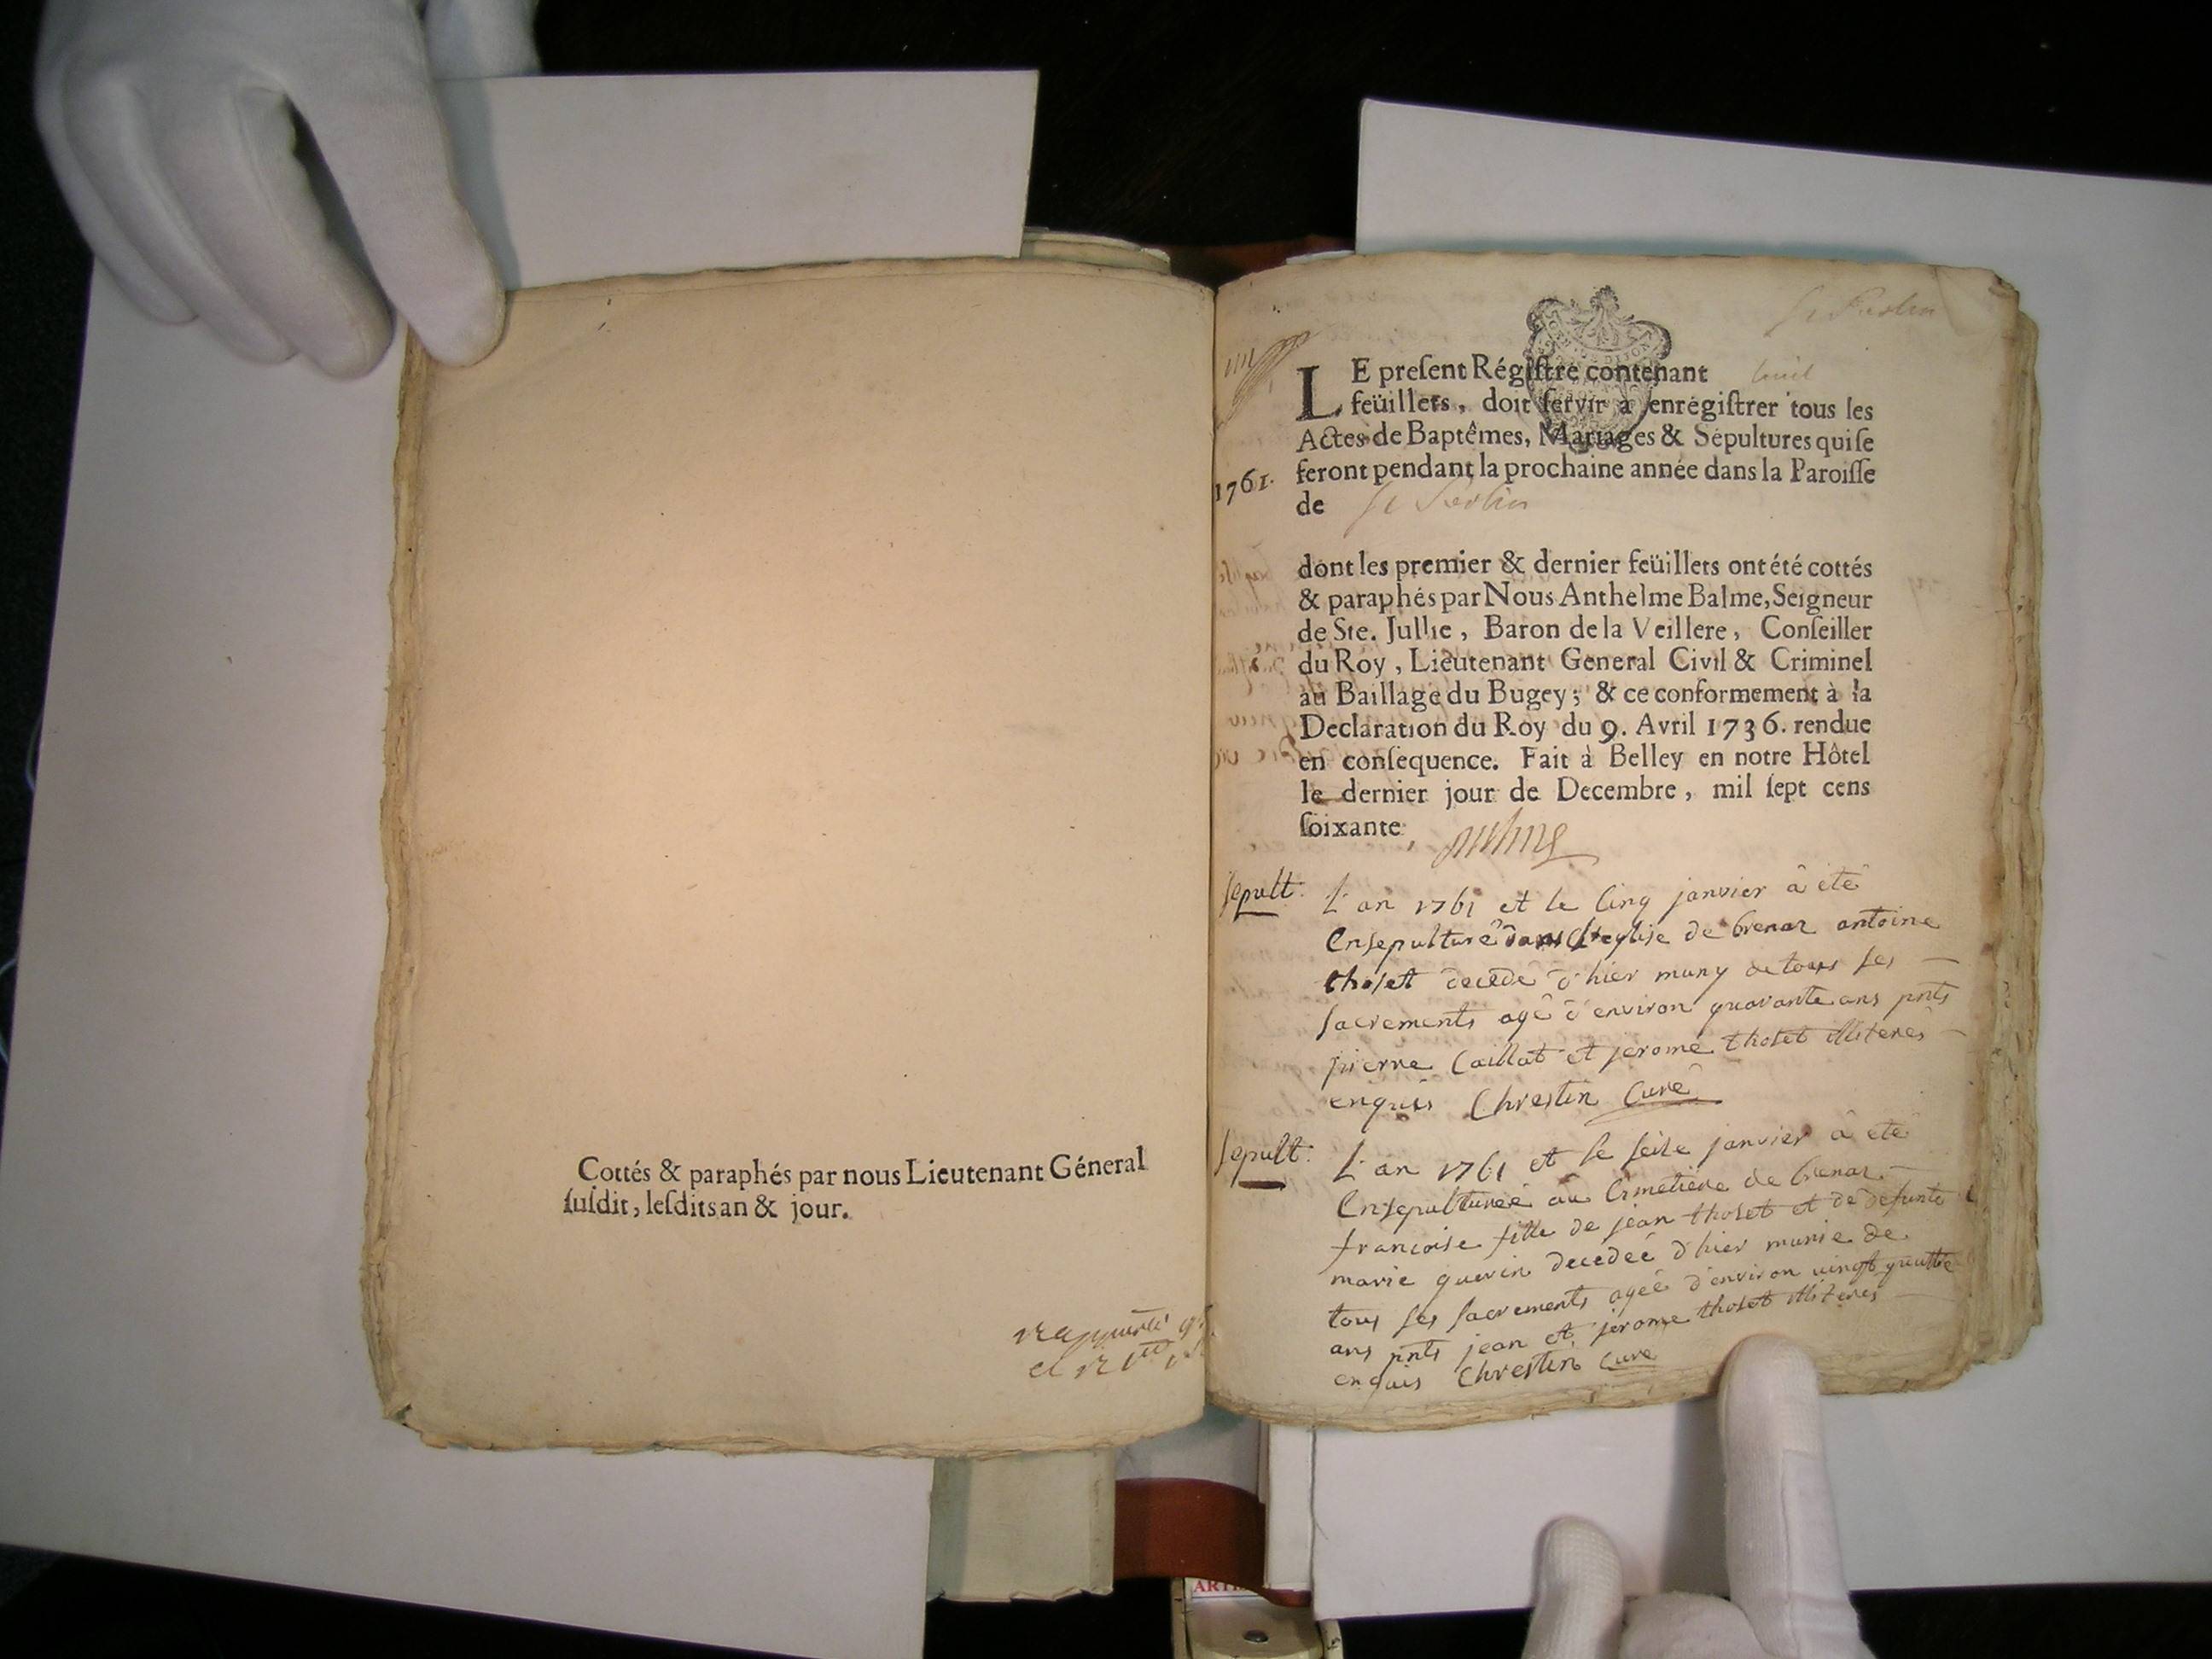 Cottés & paraphés par nous Lieutenant Géneral
ſuſdit, leſdits an & jour.
LE preſent Régiſtre contenant huit
feüillets, doit ſervir à enrégiſtrer tous les
Actes de Baptêmes, Mariages & Sépultures qui ſe
feront pendant la prochaine année dans la Paroiſſe
1761.
de
dont les premier & dernier feüillets ont été cottés
& paraphés par Nous Anthelme Balme, Seigneur
de Ste. Jullie, Baron de la Veillere, Conſeiller
du Roy, Lieutenant General Civil & Criminel
au Baillage du Bugey; & ce conformement à la
Declaration du Roy du 9. Avril 1736. rendue
en conſequence. Fait à Belley en notre Hôtel
le dernier jour de Decembre, mil ſept cens
ſoixante,
sepult:
L'an 1761 et le cinq janvier à été
Ensepulturé dans l'eglise de brenaz antoine
tholet decedé d'hier muny de tous ses
sacrements agé d'environ quarante ans pnts
pierre Caillat et jerome tholet illiterés
enquis Chrestin Curé
sepult:
L'an 1761 et le seize janvier à été
Ensepulturée au Cimetiére de brenaz
francoise fille de jean tholet et de defunte
marie guerin decedeé d'hier munie de
tous ses sacrements ageé d'environ vingt quattre
ans pnts jean et jerome tholet illiterés
enquis Chrestin Curé